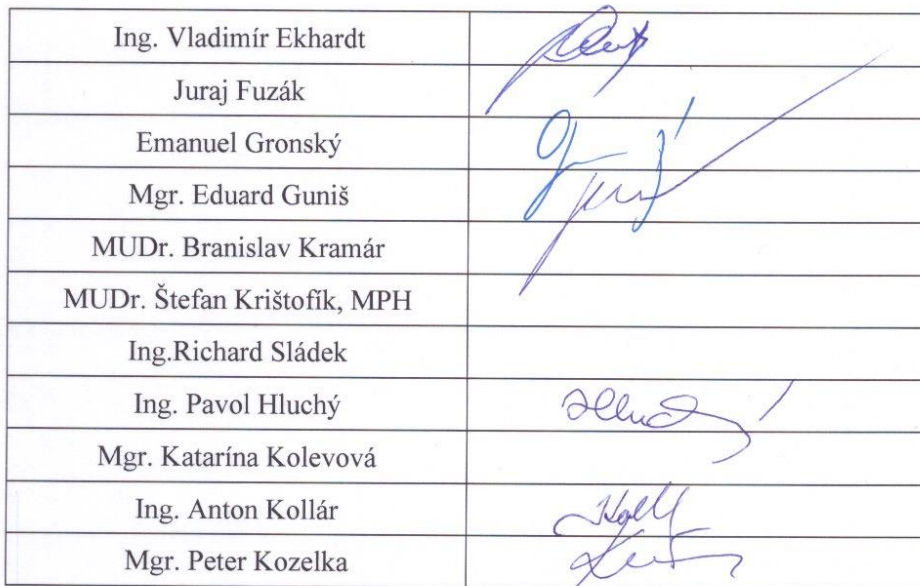 Ing. Vladimír Ekhardt
Juraj Fuzák
Emanuel Gronský
Mgr. Eduard Guniš
MUDr. Branislav Kramár
MUDr. Štefan Krištofík, MPH
Ing.Richard Sládek
Ing. Pavol Hluchý
Mgr. Katarína Kolevová
Ing. Anton Kollár
Mgr. Peter Kozelka